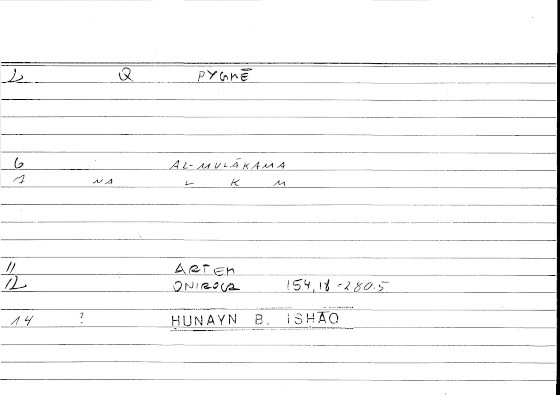 2 Q PYGMĒ
6 AL-MULĀKAMA
7 NA L K M
11 ARTEM
12 ONIROCR 154,18-280.5
14 ? HUNAYN B. ISHĀQ